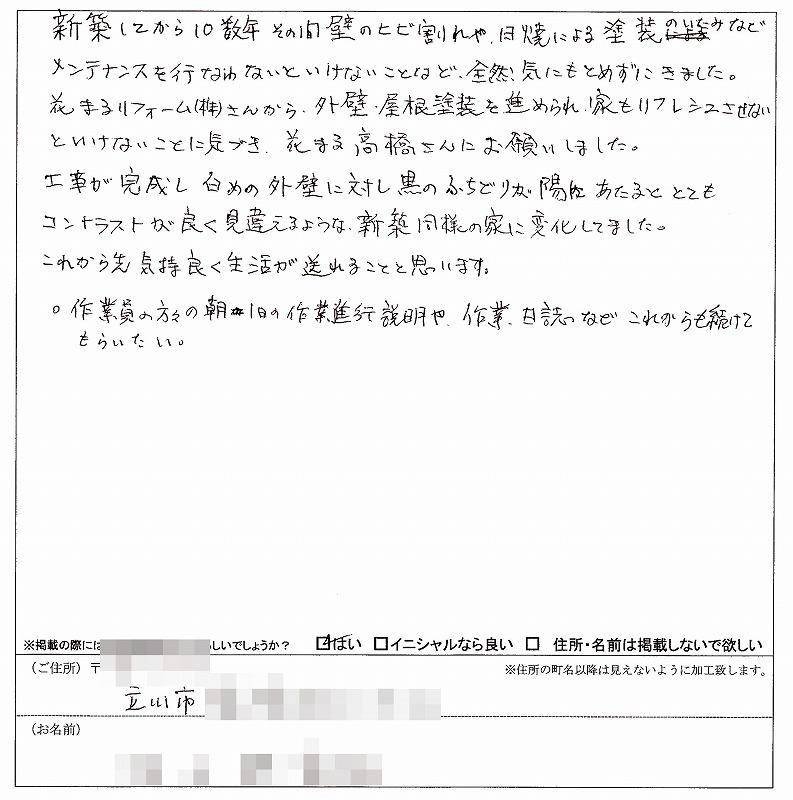 新築してから10数年その間壁のヒビ割れや、日焼による塗装のいたみなど
メンテナンスを行なわないといけないことなど、全然気にもとめずにきました。
花まるリフォーム(株)さんから、外壁・屋根塗装を進められ、家もリフレシュさせない
といけないことに気づき、花まる高橋さんにお願いしました。
工事が完成し 白めの外壁に対し黒のふちどりが陽に あたると とても
コントラストが良く見違えるような、新築同様の家に変化してました。
これから先気持良く生活が送れることと思います。
○ 作業員の方々の朝1日の作業進行説明や、作業、日誌 など これからも続けて
もらいたい。
※掲載の際に しいでしょうか? ☑はい □イニシャルなら良い □ 住所・名前は掲載しないで欲しい
(ご住所)〒 ※住所の町名以降は見えないように加工致します。
立川市
(お名前)